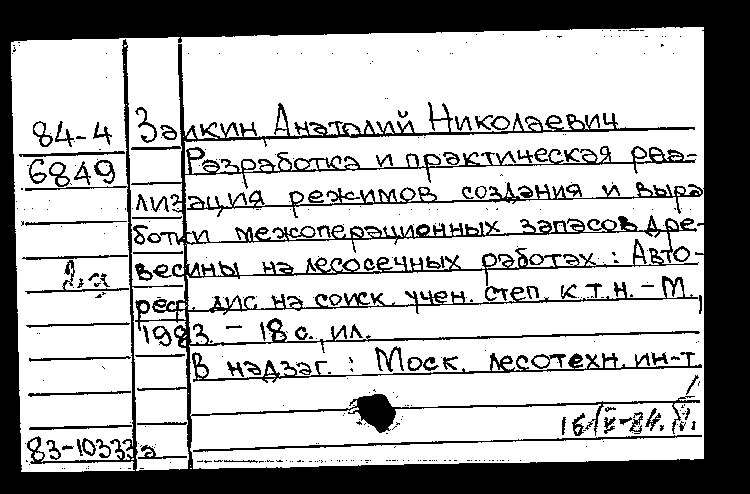 84-4 Залкин, Анатолий Николаевич
6849 Разработка и практическая реа-
лизация режимов создания и выра
ботки межоперационных запасов дре-
весины на лесосечных работах : Авто-
реф. дис. на соиск. учен. степ. к.т.н. - М.,
1983. - 18 с., ил.
В надзаг. : Моск. лесотехн. ин-т
83-10333а